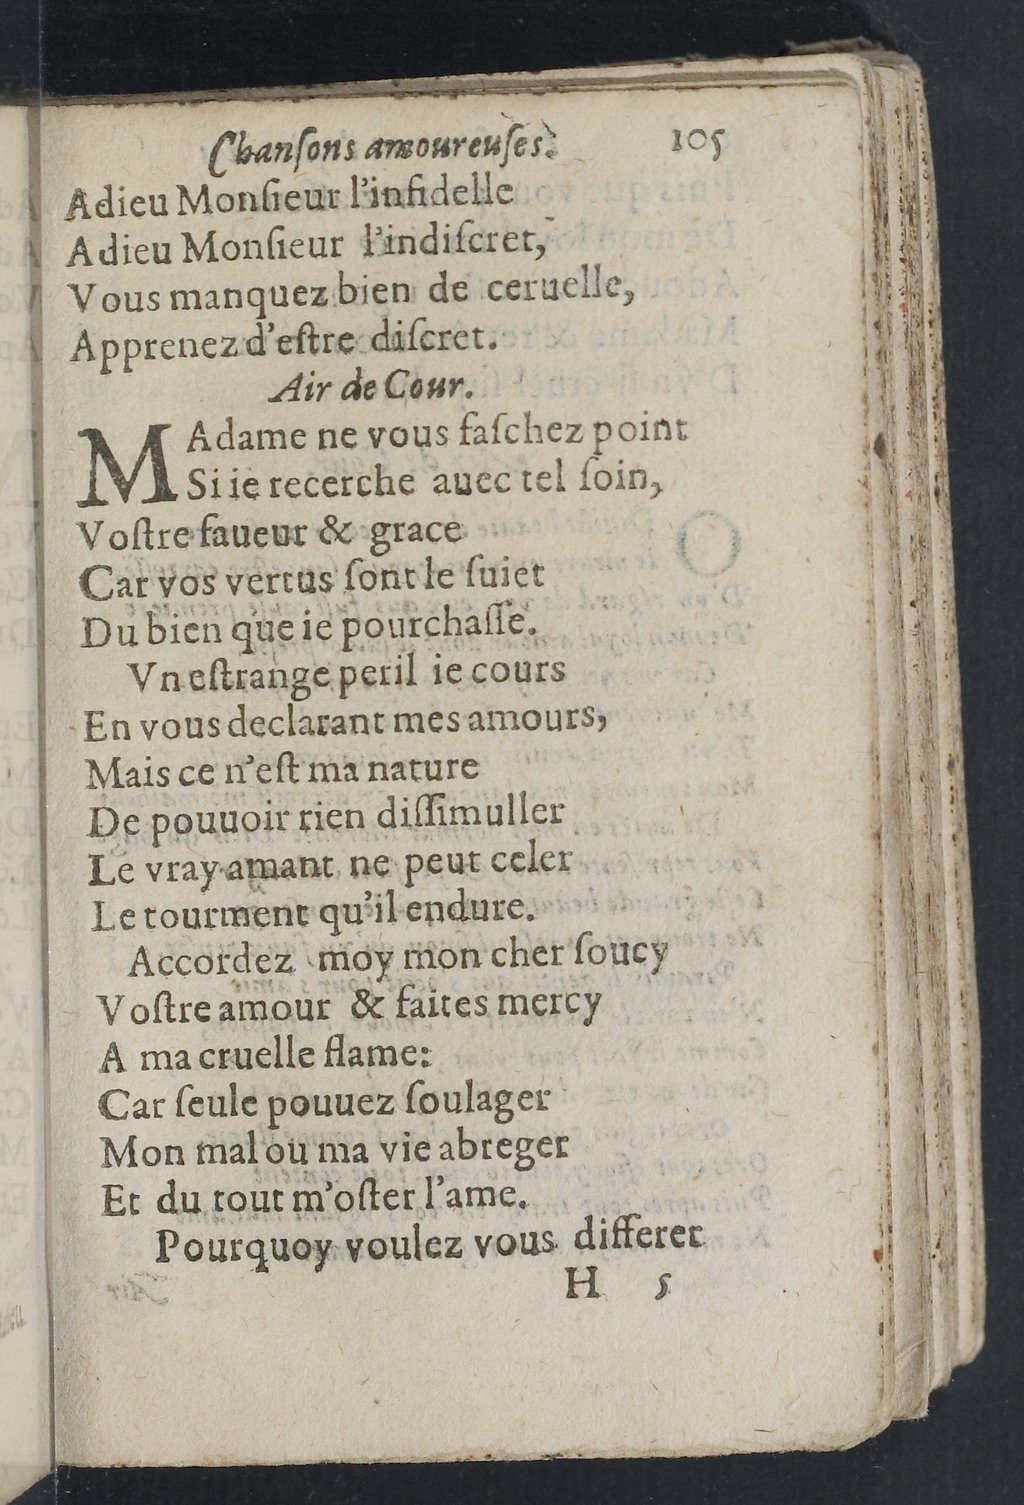 Chanſons amoureuſes. 105
Adieu Monſieur l'infidelle
Adieu Monſieur l'indiſcret,
Vous manquez bien de ceruelle,
Apprenez d'eſtre diſcret.
Air de Cour.
MAdame ne vous faſchez point
Si ie recerche auec tel ſoin,
Voſtre faueur & grace
Car vos vertus ſont le ſuiet
Du bien que ie pourchaſſe.
Vn eſtrange peril ie cours
En vous declarant mes amours,
Mais ce n'eſt ma nature
De pouuoir rien diſſimuller
Le vray amant ne peut celer
Le tourment qu'il endure.
Accordez moy mon cher ſoucy
Voſtre amour & faites mercy
A ma cruelle flame:
Car ſeule pouuez ſoulager
Mon mal ou ma vie abreger
Et du tout m'oſter l'ame.
Pourquoy voulez vous differer
H 5